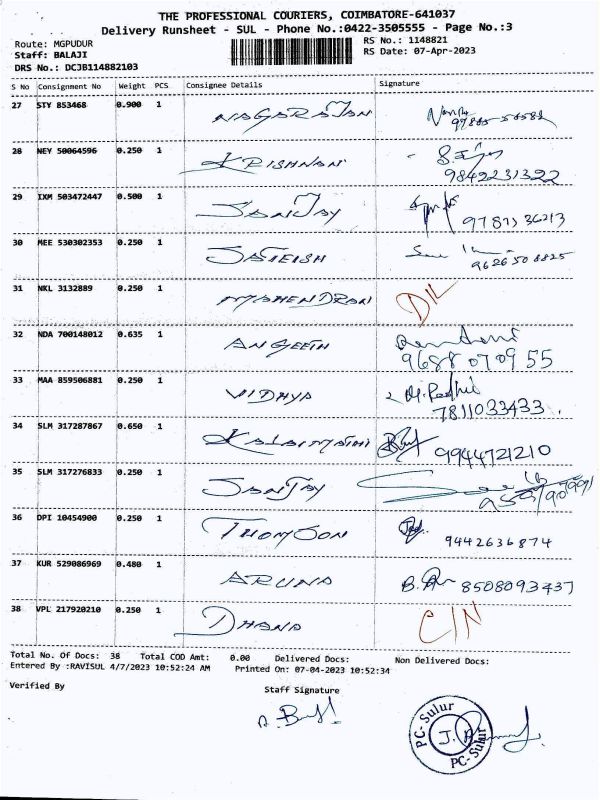 THE PROFESSIONAL COURIERS, COIMBATORE-641037
Delivery Runsheet - SUL - Phone No.:0422-3505555 - Page No.:3
Route: MGPUDUR
RS No.: 1148821
Staff: BALAJI
RS Date: 07-Apr-2023
DRS No.: DCJB114882103
S No Consignment No Weight PCS Consignee Details Signature
27 STY 853468 0.900 1 NAGARAJAN
28 NEY 50064596 0.250 1 KRISHNAN 9842231322
29 IXM 503472447 0.500 1 SANJAY
30 MEE 530302353 0.250 1 SATEISH
31 NKL 3132889 0.250 1 MAHENDRAN D/L
32 NDA 700148012 0.635 1 ANGEETH 9688070955
33 MAA 859506881 0.250 1 VIDHYA 7811033433
34 SLM 317287867 0.650 1 KALAIMATHI 9944721210
35 SLM 317276833 0.250 1 SANJAY
36 DPI 10454900 0.250 1 THOMSON 9442636874
37 KUR 529086969 0.480 1 ARUNA 8508093437
38 VPL 217920210 0.250 1 DHANA C/N
Total No. Of Docs: 38 Total COD Amt: 0.00 Delivered Docs: Non Delivered Docs:
Entered By :RAVISUL 4/7/2023 10:52:24 AM Printed On: 07-04-2023 10:52:34
Verified By
Staff Signature
PC-Sulur
PC-Sulur